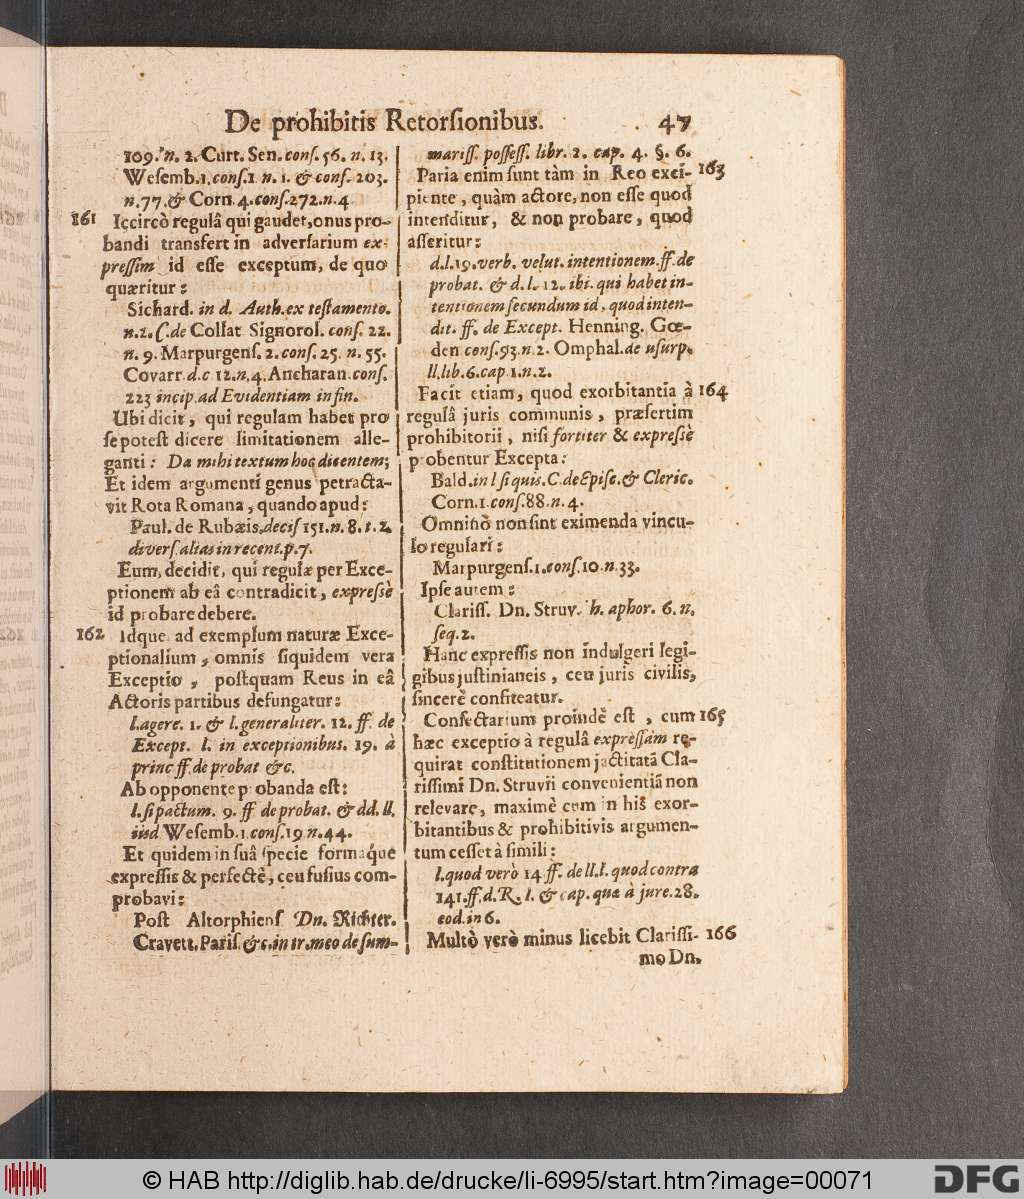 De prohibitis Retorsionibus. 47
109. n. 2. Curt. Sen. cons. 56. n. 13.
Wesemb. 1. cons. 1 n. 1. & cons. 203.
n. 77. & Corn. 4. cons. 272. n. 4
161 Iccircò regulâ qui gaudet, onus pro-
bandi transfert in adversarium ex-
pressim id esse exceptum, de quo
quæritur:
Sichard. in d. Auth. ex testamento.
n. 2. C. de Collat Signorol. cons. 22.
n. 9. Marpurgens. 2. cons. 25. n. 55.
Covarr. d. c 12. n. 4. Ancharan. cons.
223 incip. ad Evidentiam in fin.
Ubi dicit, qui regulam habet pro
se potest dicere limitationem alle-
ganti: Da mihi textum hoc dicentem;
Et idem argumenti genus petracta-
vit Rota Romana, quando apud:
Paul. de Rubæis, decis 151. n. 8. t. 2.
divers. alias in recent. p. 7.
Eum, decidit, qui regulæ per Exce-
ptionem ab eâ contradicit, expressè
id probare debere.
162 Idque ad exemplum naturæ Exce-
ptionalium, omnis siquidem vera
Exceptio, postquam Reus in eâ
Actoris partibus defungatur:
l. agere. 1. & l. generaliter. 12. ff. de
Except. l. in exceptionibus. 19. à
princ ff. de probat &c.
Ab opponente probanda est:
l. si pactum. 9. ff de probat. & dd. ll.
iisd Wesemb. 1. cons. 19 n. 44.
Et quidem in suâ specie formaq́ue
expressis & perfectè, ceu fusius com-
probavi:
Post Altorphiens Dn. Richter.
Cravett. Paris. &c. in tr. meo de sum-
mariss. possess. libr. 2. cap. 4. §. 6.
Paria enim sunt tàm in Reo exci- 163
piente, quàm actore, non esse quod
intenditur, & non probare, quod
asseritur:
d. l. 19. verb. velut. intentionem. ff. de
probat. & d. l. 12. ibi. qui habet in-
tentionem secundum id, quod inten-
dit. ff. de Except. Henning. Gœ-
den cons. 93. n. 2. Omphal. de usurp.
ll. lib. 6. cap. 1. n. 2.
Facit etiam, quod exorbitantia à 164
regulâ juris communis, præsertim
prohibitorii, nisi fortiter & expressè
probentur Excepta:
Bald. in l si quis. C. de Episc. & Cleric.
Corn. 1. cons. 88. n. 4.
Omninò non sint eximenda vincu-
lo regulari:
Marpurgens. 1. cons. 10. n. 33.
Ipse autem:
Clariss. Dn. Struv. h. aphor. 6. n.
seq. 2.
Hanc expressis non indulgeri legi-
gibus justinianeis, ceu juris civilis,
sincerè confiteatur.
Consectarium proindè est, cum 165
hæc exceptio à regulâ expressam re-
quirat constitutionem jactitatâ Cla-
rissimi Dn. Struvii convenientiâ non
relevare, maximè cum in his exor-
bitantibus & prohibitivis argumen-
tum cesset à simili:
l. quod verò 14 ff. de ll. l. quod contra
141. ff. d. R. l. & cap. quæ à jure. 28.
eod. in 6.
Multò verò minus licebit Clarissi- 166
mo Dn.
© HAB http://diglib.hab.de/drucke/li-6995/start.htm?image=00071
DFG